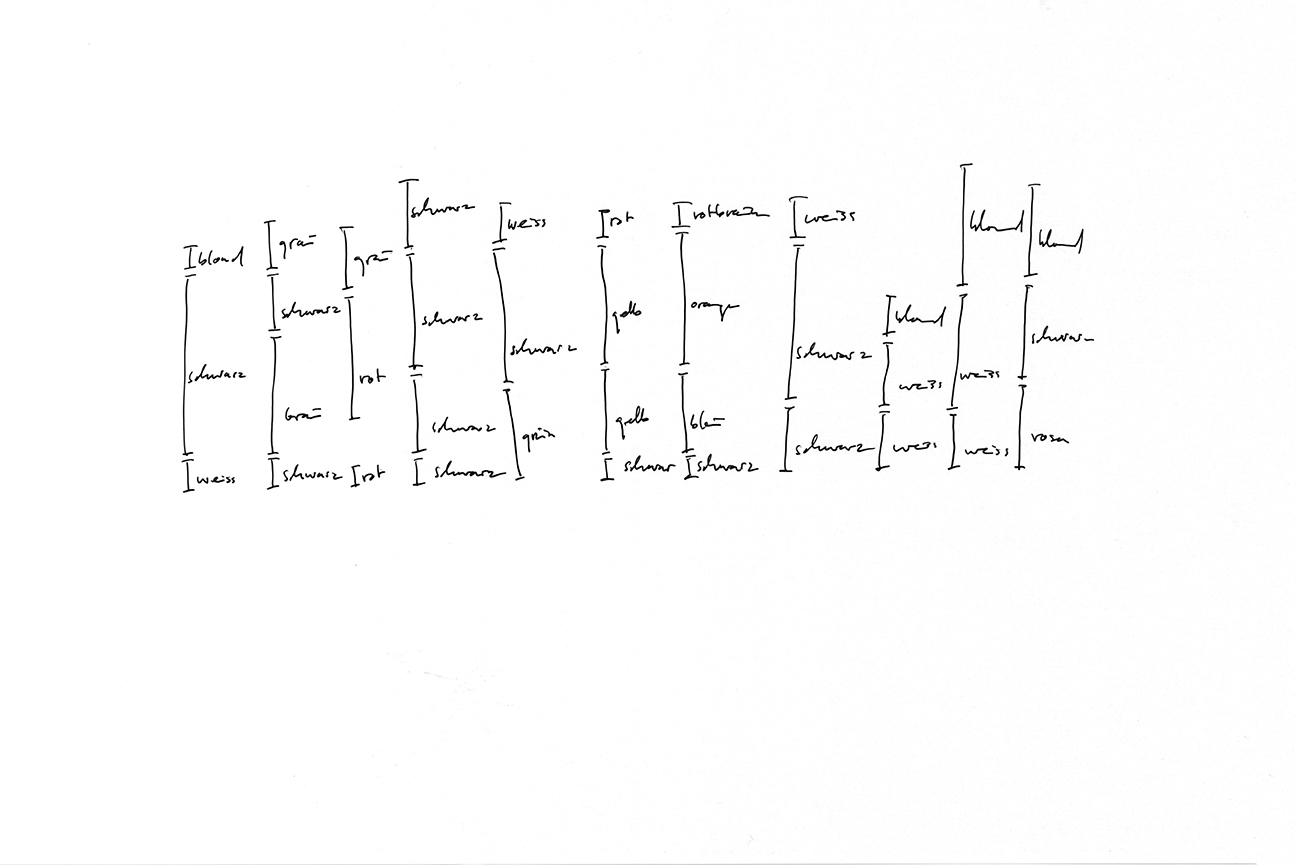 blond
schwarz
weiss
grau
schwarz
schwarz
grau
rot
rot
schwarz
schwarz
schwarz
schwarz
weiss
schwarz
grün
rot
gelb
gelb
schwar
rotbraun
orange
blau
schwarz
weiss
schwarz
schwarz
blond
weiss
weiss
blond
weiss
weiss
blond
schwarz
rosa